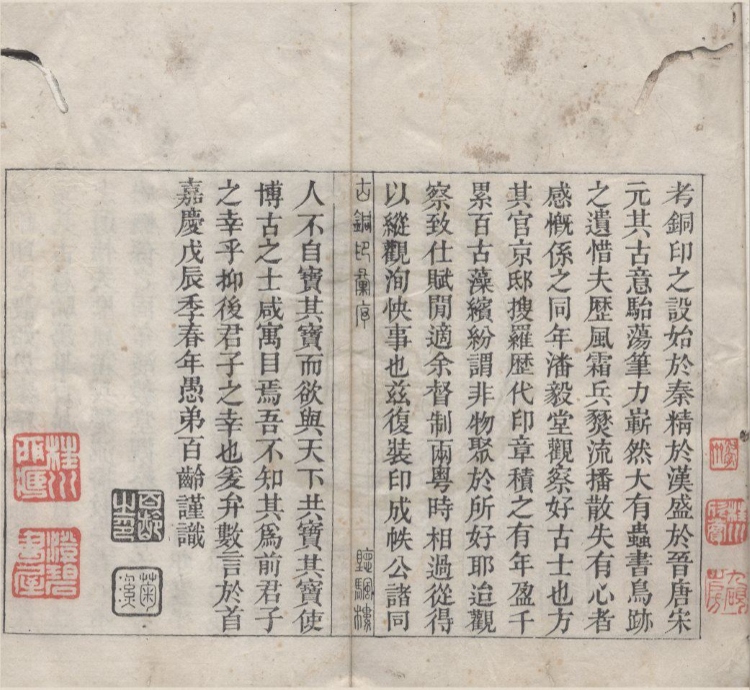 考銅印之設始於秦精於漢盛於晉唐宋
元其古意駘蕩筆力嶄然大有蟲書鳥跡
之遺惜夫歷風霜兵燹流播散失有心者
感慨係之同年潘毅堂觀察好古士也方
其官京邸搜羅歷代印章積之有年盈千
累百古藻繽紛謂非物聚於所好耶迨觀
察致仕賦閒適余督制兩粵時相過從得
以縱觀洵怏事也茲復裝印成帙公諸同
古銅印彙序
聽颿樓
人不自寶其寶而欲與天下共寶其寶使
博古之士咸寓目焉吾不知其為前君子
之幸乎抑後君子之幸也爰弁數言於首
嘉慶戊辰季春年愚弟百齡謹識
百齡之印
菊溪
桂川
澄碧書屋